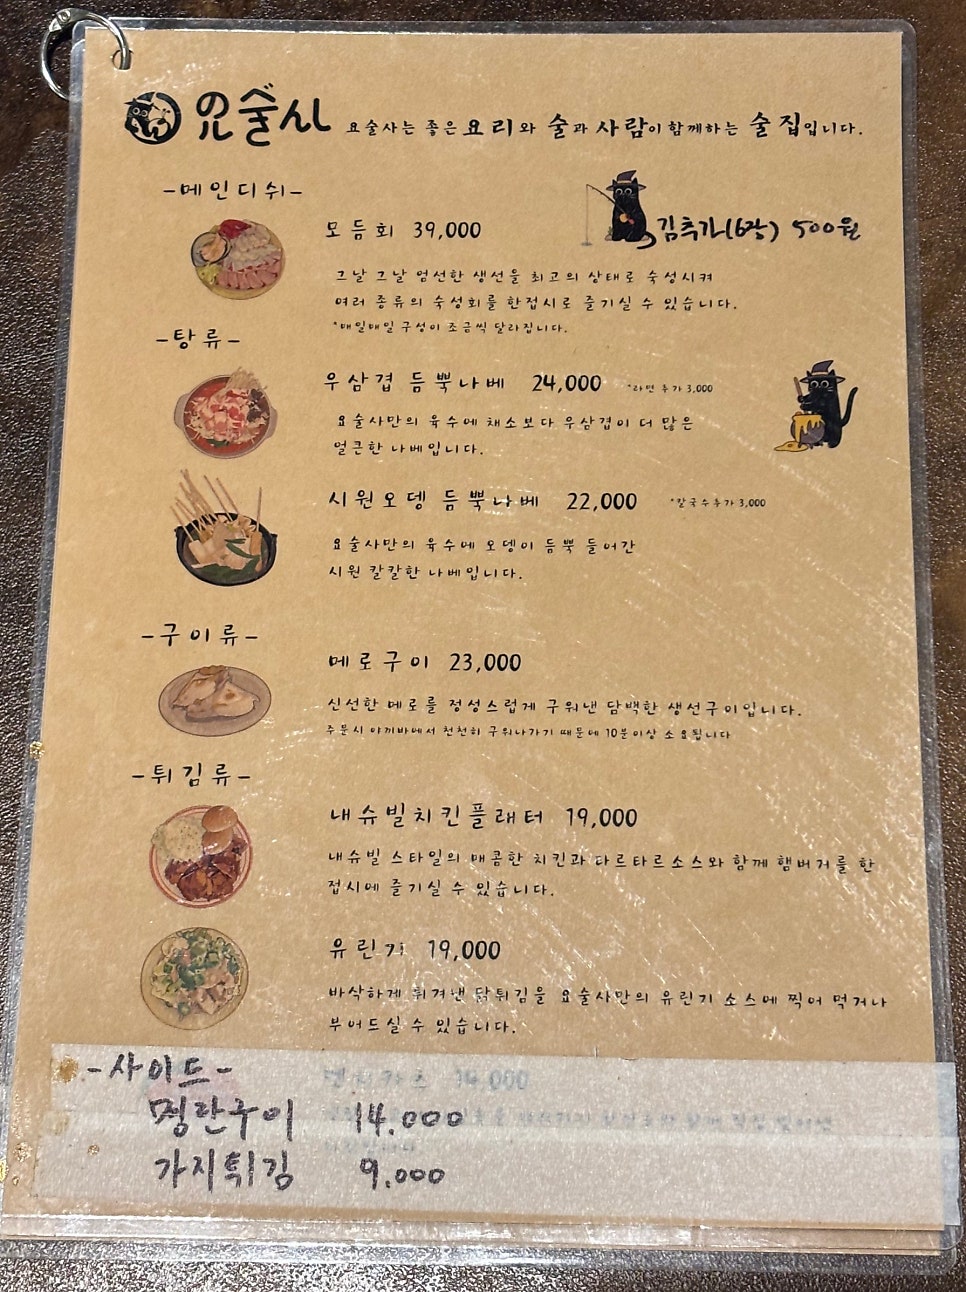 요술사 요술사는 좋은 요리와 술과 사람이 함께하는 술집입니다.
-메인디쉬-
모듬회 39,000
김추가(6장) 500원
그날 그날 엄선한 생선을 최고의 상태로 숙성시켜
여러 종류의 숙성회를 한접시로 즐기실 수 있습니다.
*매일매일 구성이 조금씩 달라집니다.
-탕류-
우삼겹 듬뿍나베 24,000 *라면 추가 3,000
요술사만의 육수에 채소보다 우삼겹이 더 많은
얼큰한 나베입니다.
시원오뎅 듬뿍나베 22,000 *칼국수추가 3,000
요술사만의 육수에 오뎅이 듬뿍 들어간
시원 칼칼한 나베입니다.
-구이류-
메로구이 23,000
신선한 메로를 정성스럽게 구워낸 담백한 생선구이입니다.
주문시 야끼바에서 천천히 구워나가기 때문에 10분이상 소요됩니다
-튀김류-
내슈빌치킨플래터 19,000
내슈빌 스타일의 매콤한 치킨과 타르타르소스와 함께 햄버거를 한
접시에 즐기실 수 있습니다.
유린기 19,000
바삭하게 튀겨낸 닭튀김을 요술사만의 유린기 소스에 찍어 먹거나
부어드실 수 있습니다.
-사이드-
멘치카츠 14,000
명란구이 14.000
가지튀김 9.000